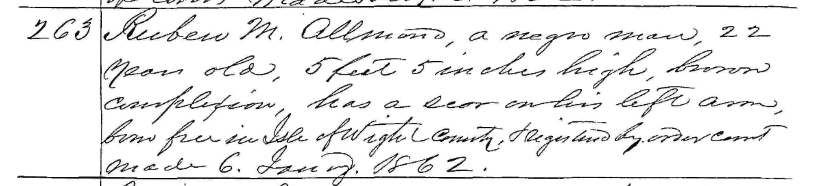 263 Reuben M. Allmond, a negro man, 22
years old, 5 feet 5 inches high, brown
complexion, has a scar on his left arm,
born free in Isle of Wight County, & registered by order court
made 6. Jany. 1862.